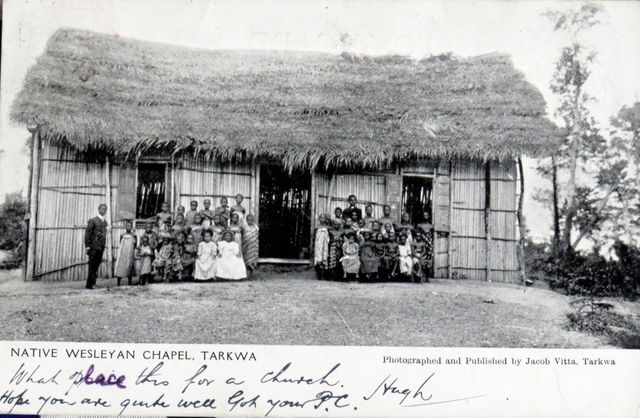 NATIVE WESLEYAN CHAPEL, TARKWA
Photographed and Published by Jacob Vitta, Tarkwa
What place this for a church. Hugh
Hope you are quite well Got your P.C.